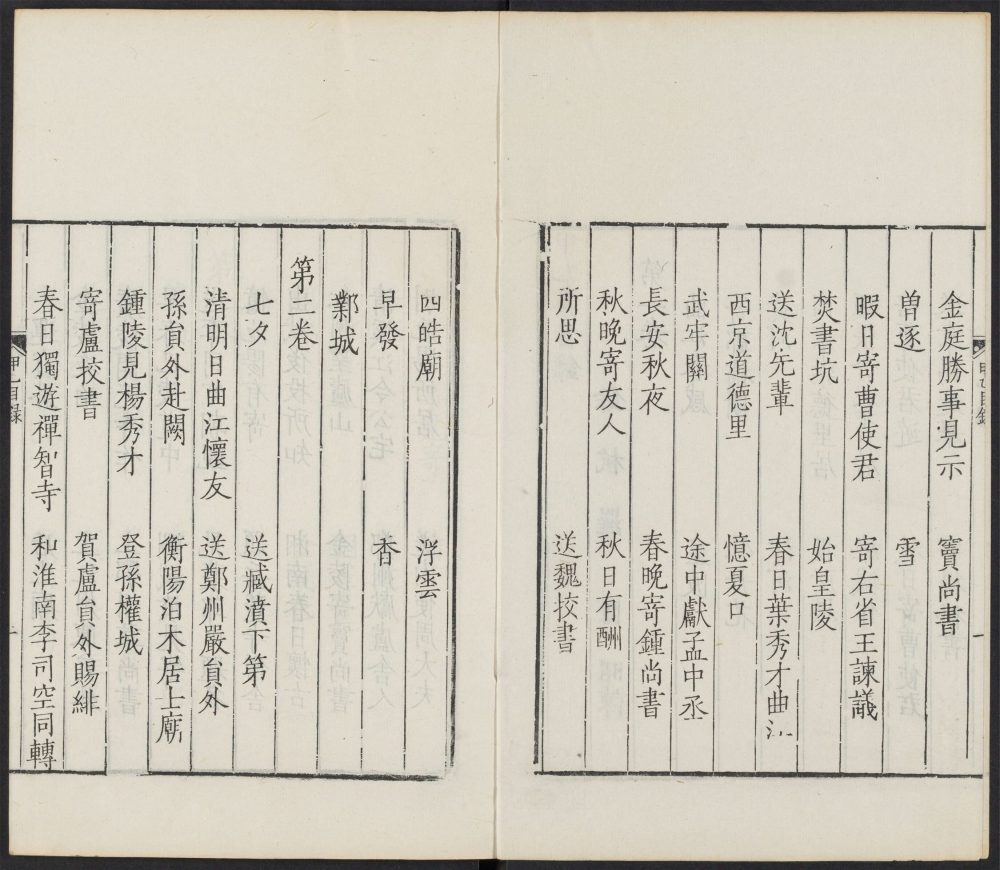 金庭勝事見示　竇尚書
曾逐　雪
暇日寄曹使君　寄右省王諫議
焚書坑　始皇陵
送沈先輩　春日葉秀才曲江
西京道德里　憶夏口
武牢關　途中獻孟中丞
長安秋夜　春晚寄鍾尚書
秋晚寄友人　秋日有酬
所思　送魏挍書
四皓廟　浮雲
早發　香
鄴城
第二卷
七夕　送臧濆下第
清明日曲江懷友　送鄭州嚴貟外
孫貟外赴闕　衡陽泊木居士廟
鍾陵見楊秀才　登孫權城
寄盧挍書　賀盧貟外賜緋
春日獨遊禪智寺　和淮南李司空同轉
甲乙目錄